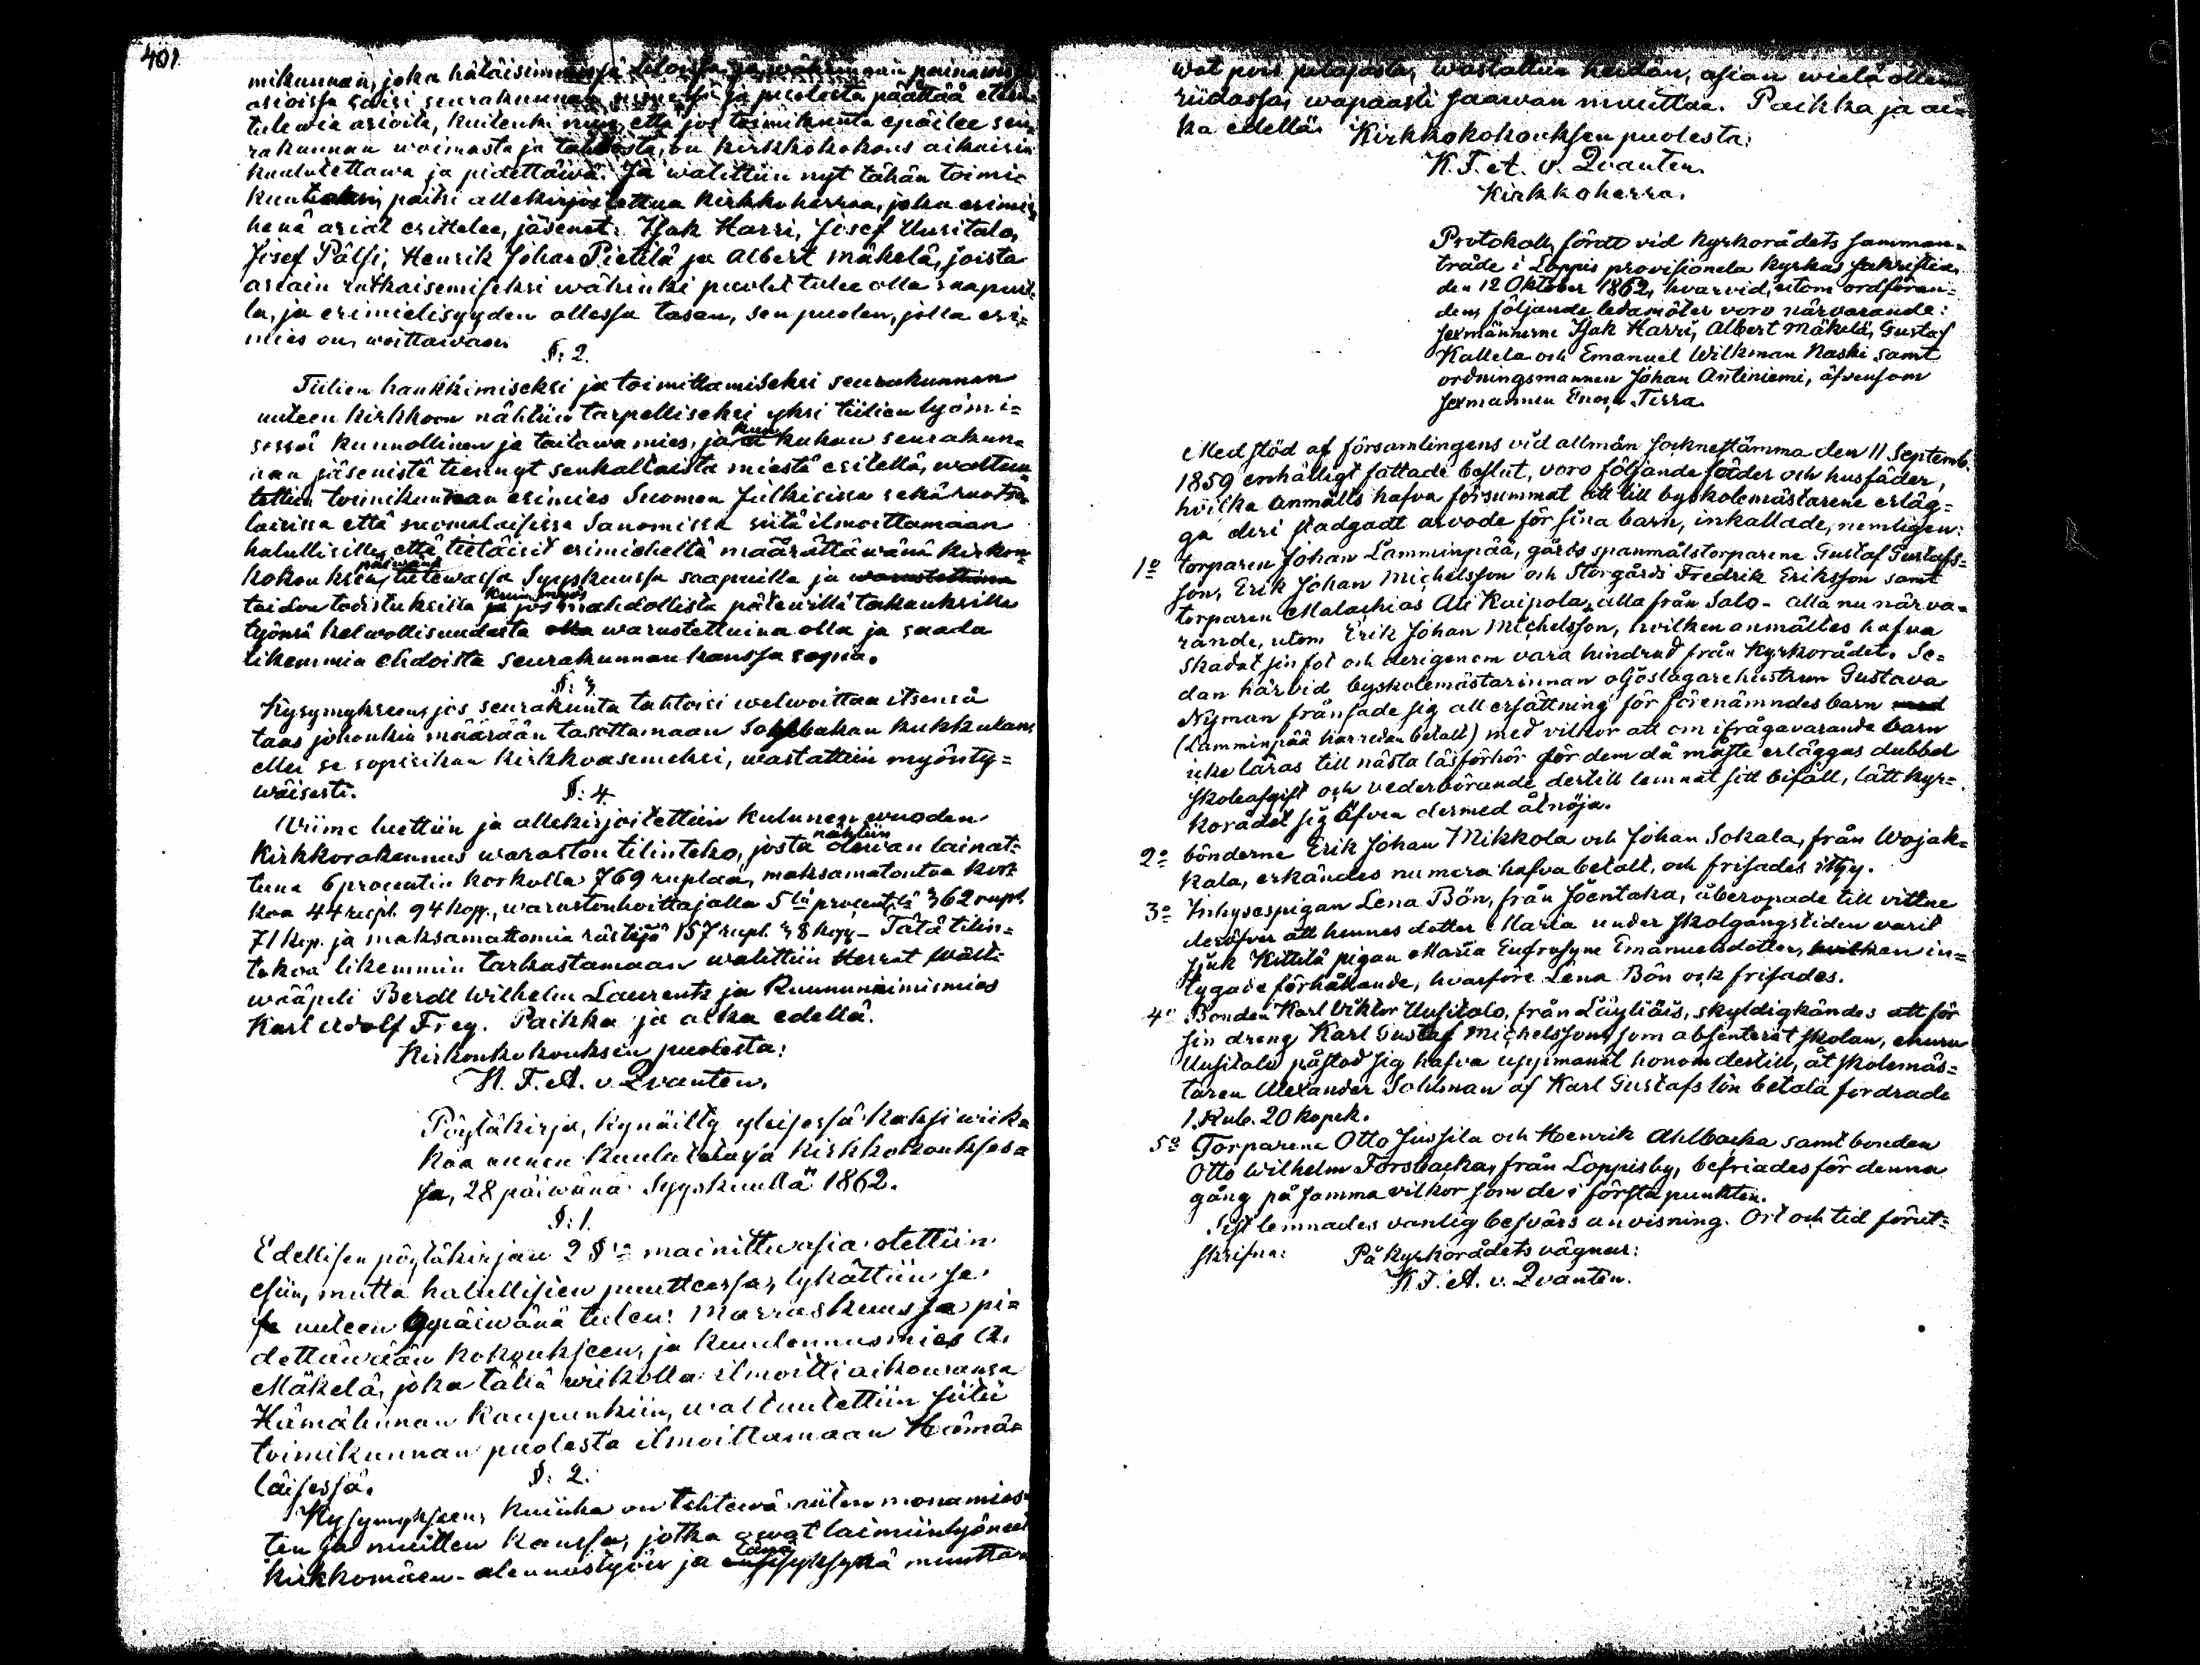 401
mikunnan, joka hätäisimmissä tiloissa ja painawissa
asioissa saisi seurakunnan nimessä ja puolesta päättää eteen
tulewia asioita, kuitenki niin, että jos toimikunta epäilee seu-
rakunnan woimasta ja tahdosta, on kirkkokokous aikaisin
kuulutettawa ja pidettäwä. Ja walittiin nyt tähän toimi-
kuntaan, paitsi allekirjoitettua kirkkoherraa, joka esimie-
henä asiat esittelee, jäsenet: Isak Harri, Josef Uusitalo,
Josef Pälsi, Henrik Johan Pietilä ja Albert Mäkelä, joista
asiain ratkaisemiseksi wähinki puolet tulee olla saapuil-
la, ja erimielisyyden ollessa tasan, sen puolen, jolla esi-
mies on, woittawan.
§: 2.
Tiilien hankkimiseksi ja toimittamiseksi seurakunnan
uuteen kirkkoon nähtiin tarpelliseksi yksi tiilien työmi-
sessä kunnollinen ja taitawa mies, ja kun kukan seurakun-
nan jäsenistä tiennyt senkaltaista miestä esitellä, waltuu-
tettiin toimikunnan esimies Suomen Julkisissa sekä ruotsa-
laisissa että suomalaisissa Sanomissa siitä ilmoittamaan
halullisille, että tietäisit esimieheltä määrättäwänä kirkon-
kokouksen päiwänä tulewassa Syyskuussa saapuilla ja
taidon todistuksilla kuin myös mahdollista pätewillä takauksilla
työnsä kelwollisuudesta warustettuina olla ja saada
likemmin ehdoista seurakunnan kanssa sopia.
§: 3.
Kysymykseen, jos seurakunta tahtoisi welwoittaa itsensä
taas johonkin määrään tasottamaan kukkulan,
ellei se sopisikan kirkkoasemeksi, wastattiin myönty-
wäisesti.
§: 4.
Wiime luettiin ja allekirjoitettiin kuluneen wuoden
kirkkorakennus waraston tilinteko, josta nähtiin olewan lainat-
tuna 6 procentin korkolla 769 ruplaa, maksamatonta kor-
koa 44 rupl. 94 kop., warastonhoittajalla 5 procentilla 362 rupl.
71 kop. ja maksamattomia rästejä 157 rupl. 38 kop. – Tätä tilin-
tekoa likemmin tarkastamaan walittiin Herrat Wält-
wääpeli Berdt Wilhelm Laurentz ja Ruununnimismies
Karl Adolf Frey. Paikka ja aika edellä.
Kirkonkokouksen puolesta:
K. F. A. v. Qvanten.
Pöytäkirja, kynäilty yleisessä kaksi wiik-
koa ennen kuulutetussa kirkkokoukses-
sa, 28 päiwänä Syyskuulla 1862.
§: 1.
Edellisen pöytäkirjan 2 §:ssä mainittu asia otettiin
esiin, mutta halullisien puutteessa, lykättiin se
uuteen 9 päiwänä tulew: Marraskuussa pi-
dettäwään kokoukseen, ja kuudennusmies A.
Mäkelä, joka tällä wiikolla ilmoitti aikowansa
Hämälinnan kaupunkiin, waltuutettiin siitä
toimikunnan puolesta ilmoittamaan Hämä-
läisessä.
§: 2.
Kysymykseen, kuinka on tehtäwä niiten monamies-
ten ja muitten kanssa, jotka owat laiminlyöneet
kirkkomäen alennustyön ja tänä syksynä muutta-
wat pois pitäjästä, wastattiin heidän, asian wielä ollen
riidassa, wapaasti saawan muuttaa. Paikka ja ai-
ka edellä.
Kirkkokokouksen puolesta:
K. F. A. v. Qvanten.
Kirkkoherra.
Protokoll, fördt vid Kyrkorådets samman-
träde i Loppis provisionela kyrkas sakristia,
den 12 Oktober 1862, hvarvid, utom ordföran-
den, följande ledamöter voro närvarande:
sexmännerne Isak Harri, Albert Mäkelä, Gustaf
Kallela och Emanuel Wilkman Naski samt
ordningsmannen Johan Antiniemi, äfvensom
sexmannen Enoch Terra.
Med stöd af församlingens vid allmän socknestämma den 11 Septemb.
1859 enhälligt fattade beslut, voro följande fäder och husfäder,
hvilka anmälts hafva försummat att till byskolemästarene erläg-
ga deri stadgadt arvode för sina barn, inkallade, nemligen:
1o torparen Johan Lamminpää, gårds spanmålstorparene Gustaf Gustafs-
son, Erik Johan Michelsson och Storgårds Fredrik Eriksson samt
torparen Malachias Ali Kaipola, alla från Salo – alla nu närva-
rande, utom Erik Johan Michelsson, hvilken anmältes hafva
skadat sin fot och derigenom vara hindrad från Kyrkorådet. Se-
dan härvid byskolemästarinnan oljeslagarehustrun Gustava
Nyman frånsade sig all ersättning för förenämndes barn
(Lamminpää har redan betalt) med vilkor att om ifrågavarande barn
icke läras till nästa läsförhör för dem då måste erläggas dubbel
skoleafgift och vederbörande dertill lemnat sitt bifall, lätt Kyr-
korådet sig äfven dermed åtnöja.
2o bönderne Erik Johan Mikkola och Johan Sokala, från Wojak-
kala, erkändes numera hafva betalt, och frisades
3o Inhysespigan Lena Bön, från Joentaka, åberopade till vittne
deröfver att hennes dotter Maria under skolgångstiden varit
sjuk Kittilä pigan Maria Eufrosyne Emanuelsdotter, hvilken in-
tygade förhållande, hvarföre Lena Bön ock frisades.
4o Bonden Karl Viktor Uusitalo, från Läyliäis, skyldigkändes att för
sin dreng Karl Gustaf Michelsson, som absenterat skolan, ehuru
Uusitalo påstod sig hafva uppmanat honom dertill, åt skolemäs-
taren Alexander Sohlman af Karl Gustafs lön betala fordrade
1 Rub. 20 kopek.
5o Torparene Otto Jussila och Henrik Ahlbacka samt bonden
Otto Wilhelm Forsbacka, från Loppisby, befriades för denna
gång på samma vilkor som de i första punkten.
Sist lemnades vanlig besvärs anvisning. Ort och tid förut-
skrifna:
På kyrkorådets vägnar:
K. F. A. v. Qvanten.